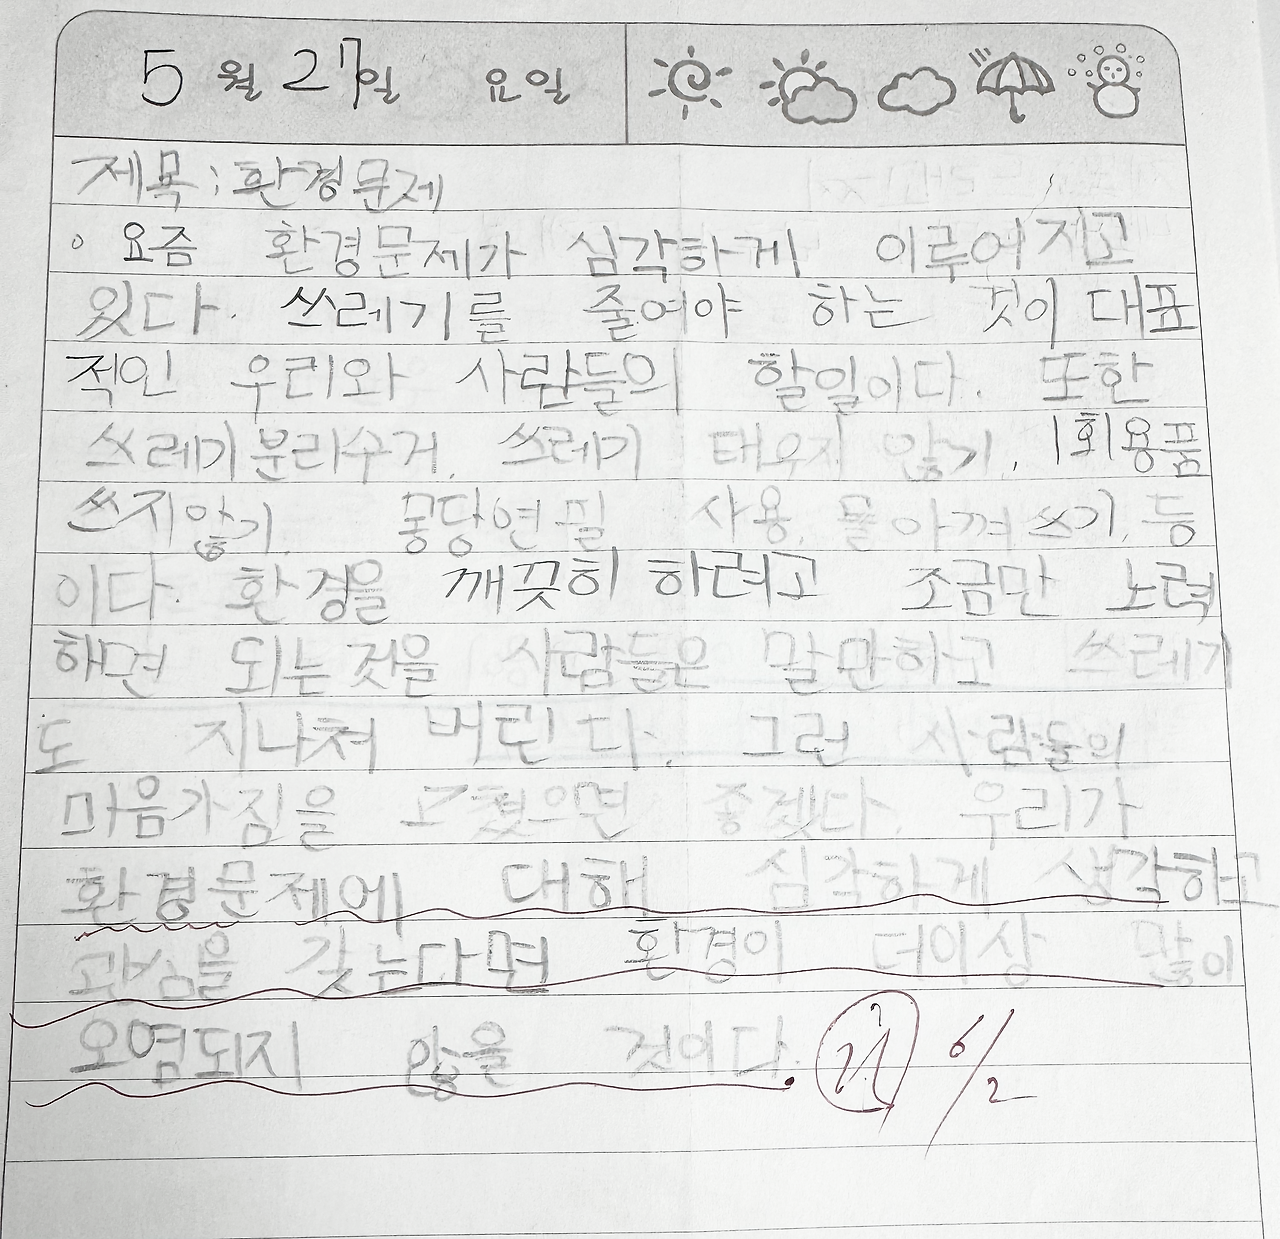 5월 27일 요일
제목 : 환경문제
요즘 환경문제가 심각하게 이루어지고
있다. 쓰레기를 줄여야 하는 것이 대표
적인 우리와 사람들의 할일이다. 또한
쓰레기분리수거, 쓰레기 태우지 않기, 1회용품
쓰지않기, 몽당연필 사용, 물 아껴쓰기, 등
이다. 환경을 깨끗히 하려고 조금만 노력
해면 되는것을 사람들은 말만하고 쓰레기
도 지나쳐 버린다. 그런 사람들의
마음가짐을 고쳤으면 좋겠다. 우리가
환경문제에 대해 심각하게 생각하고
관심을 갖는다면 환경이 더이상 많이
오염되지 않을 것이다.
6/2